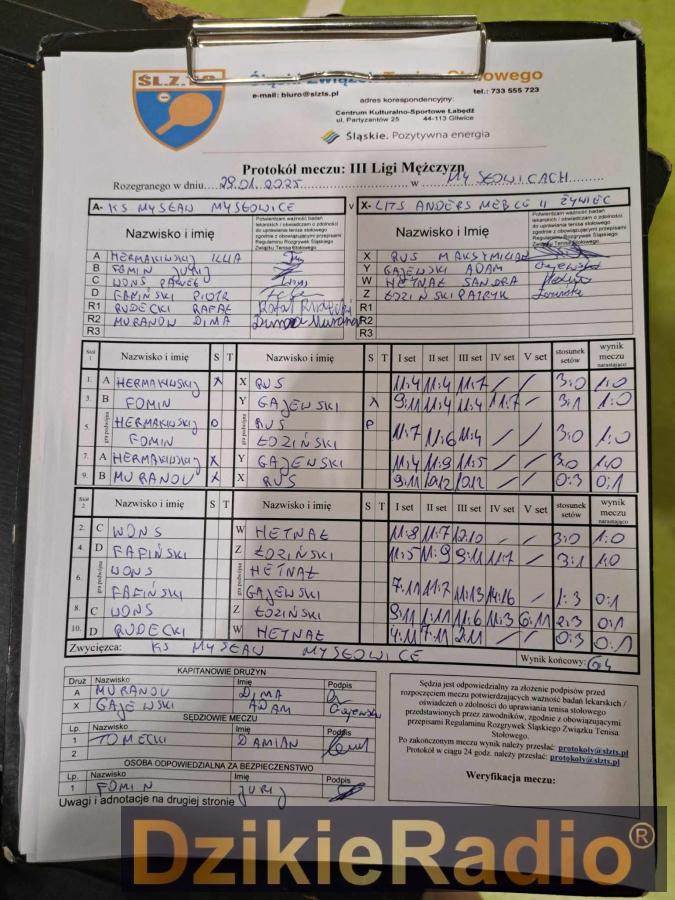 ŚL.Z.T.S.
Śląski Związek Tenisa Stołowego
e-mail: biuro@slzts.pl tel.: 733 555 723
adres korespondencyjny:
Centrum Kulturalno-Sportowe Łabędź
ul. Partyzantów 25 44-113 Gliwice
Śląskie. Pozytywna energia
Protokół meczu: III Ligi Mężczyzn
Rozegranego w dniu 29.01.2025 w MYSŁOWICACH
A- KS MYSŁAW MYSŁOWICE v X- LITS ANDERS MEBLE II ŻYWIEC
Nazwisko i imię Potwierdzam ważność badań lekarskich / oświadczam o zdolności do uprawiania tenisa stołowego zgodnie z obowiązującymi przepisami Regulaminu Rozgrywek Śląskiego Związku Tenisa Stołowego
Nazwisko i Imię Potwierdzam ważność badań lekarskich / oświadczam o zdolności do uprawiania tenisa stołowego zgodnie z obowiązującymi przepisami Regulaminu Rozgrywek Śląskiego Związku Tenisa Stołowego
A HERMAKIWSKIJ ILLIA X RUS MAKSYMILIAN
B FOMIN JURIJ Y GAJEWSKI ADAM Gajewski
C WONS PAWEŁ W HETNAŁ SANDRA
D FAFIŃSKI PIOTR Z ŁOZIŃSKI PATRYK
R1 RUDECKI RAFAŁ Rafał Rudecki R1
R2 MURANOV DIMA R2
R3 R3
Stół 1 Nazwisko i imię S T Nazwisko i imię S T I set II set III set IV set V set stosunek setów wynik meczu narastająco
1. A HERMAKIWSKIJ X X RUS 11:4 11:4 11:7 / / 3:0 1:0
3. B FOMIN Y GAJEWSKI X 9:11 11:4 11:4 11:7 / 3:1 1:0
5. gra podwójna HERMAKIWSKIJ O RUS P
FOMIN ŁOZIŃSKI 11:7 11:6 11:4 / / 3:0 1:0
7. A HERMAKIWSKIJ X Y GAJEWSKI 11:4 11:9 11:5 / / 3:0 1:0
9. B MURANOV X X RUS 9:11 10:12 10:12 / / 0:3 0:1
Stół 2 Nazwisko i imię S T Nazwisko i imię S T I set II set III set IV set V set stosunek setów wynik meczu narastająco
2. C WONS W HETNAŁ 11:8 11:7 12:10 / / 3:0 1:0
4. D FAFIŃSKI Z ŁOZIŃSKI 11:5 11:9 9:11 11:7 / 3:1 1:0
6. gra podwójna WONS HETNAŁ
FAFIŃSKI GAJEWSKI 7:11 11:7 11:13 14:16 / 1:3 0:1
8. C WONS Z ŁOZIŃSKI 9:11 11:6 11:3 6:11 2:3 0:1
10. D RUDECKI W HETNAŁ 4:11 7:11 / / 0:3 0:1
Zwycięzca: KS MYSŁAW MYSŁOWICE Wynik końcowy: 6:4
KAPITANOWIE DRUŻYN
Druż Nazwisko Imię Podpis
A MURANOV DIMA
X GAJEWSKI ADAM Gajewski
SĘDZIOWIE MECZU
Lp. Nazwisko Imię Podpis
1 TOMECKI DAMIAN
2
OSOBA ODPOWIEDZIALNA ZA BEZPIECZEŃSTWO
Lp. Nazwisko Imię Podpis
1 FOMIN JURIJ
Uwagi i adnotacje na drugiej stronie
Sędzia jest odpowiedzialny za złożenie podpisów przed
rozpoczęciem meczu potwierdzających ważność badań lekarskich /
oświadczeń o zdolności do uprawiania tenisa stołowego
przedstawionych przez zawodników, zgodnie z obowiązującymi
przepisami Regulaminu Rozgrywek Śląskiego Związku Tenisa
Stołowego.
Po zakończonym meczu wynik należy przesłać: protokoly@slzts.pl
Protokół w ciągu 24 godz. należy przesłać: protokoly@slzts.pl
Weryfikacja meczu:
DzikieRadio®